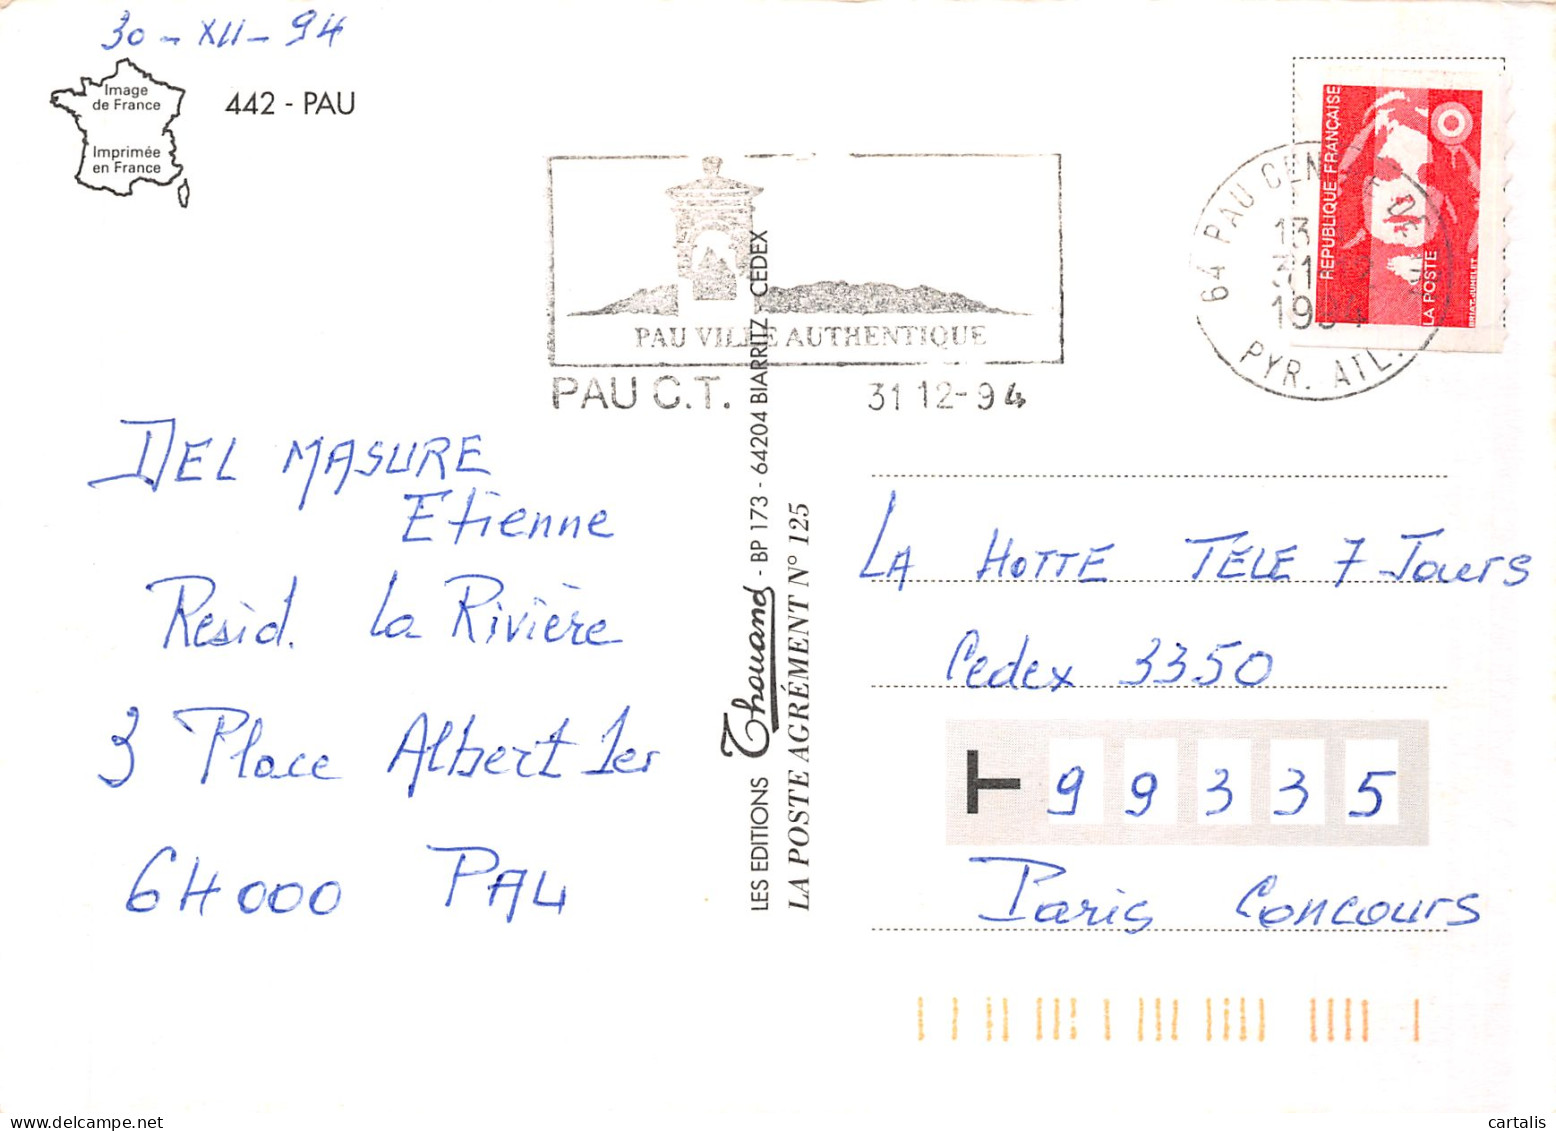 30-XII-94
Image
de France
Imprimée
en France
442 - PAU
PAU VILLE AUTHENTIQUE
PAU C.T. 31 12-94
64 PAU
PYR. ATL.
13
31
1994
REPUBLIQUE FRANÇAISE
LA POSTE
BRIAT-JUMELET
DEL MASURE
Etienne
Resid. La Rivière
3 Place Albert 1er
64000 PAU
LES EDITIONS Thouand - BP 173 - 64204 BIARRITZ - CEDEX
LA POSTE AGRÉMENT N° 125
LA HOTTE TELE 7 Jours
Cedex 3350
99335
Paris Concours
cartalis